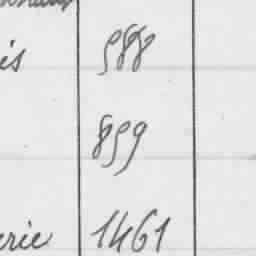 is 588
859
erie 1461